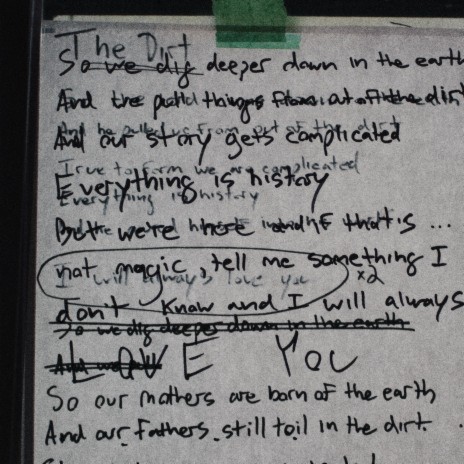 The Dirt
So we dig deeper down in the earth
And the things from out of the dirt
And our story gets complicated
True to form we are complicated
Everything is history
Everything is history
But we're here and if that's ...
not magic, tell me something I
I will always love you x2
don't know and I will always
So we dig deeper down in the earth
LOVE You
So our mothers are born of the earth
And our fathers still toil in the dirt.